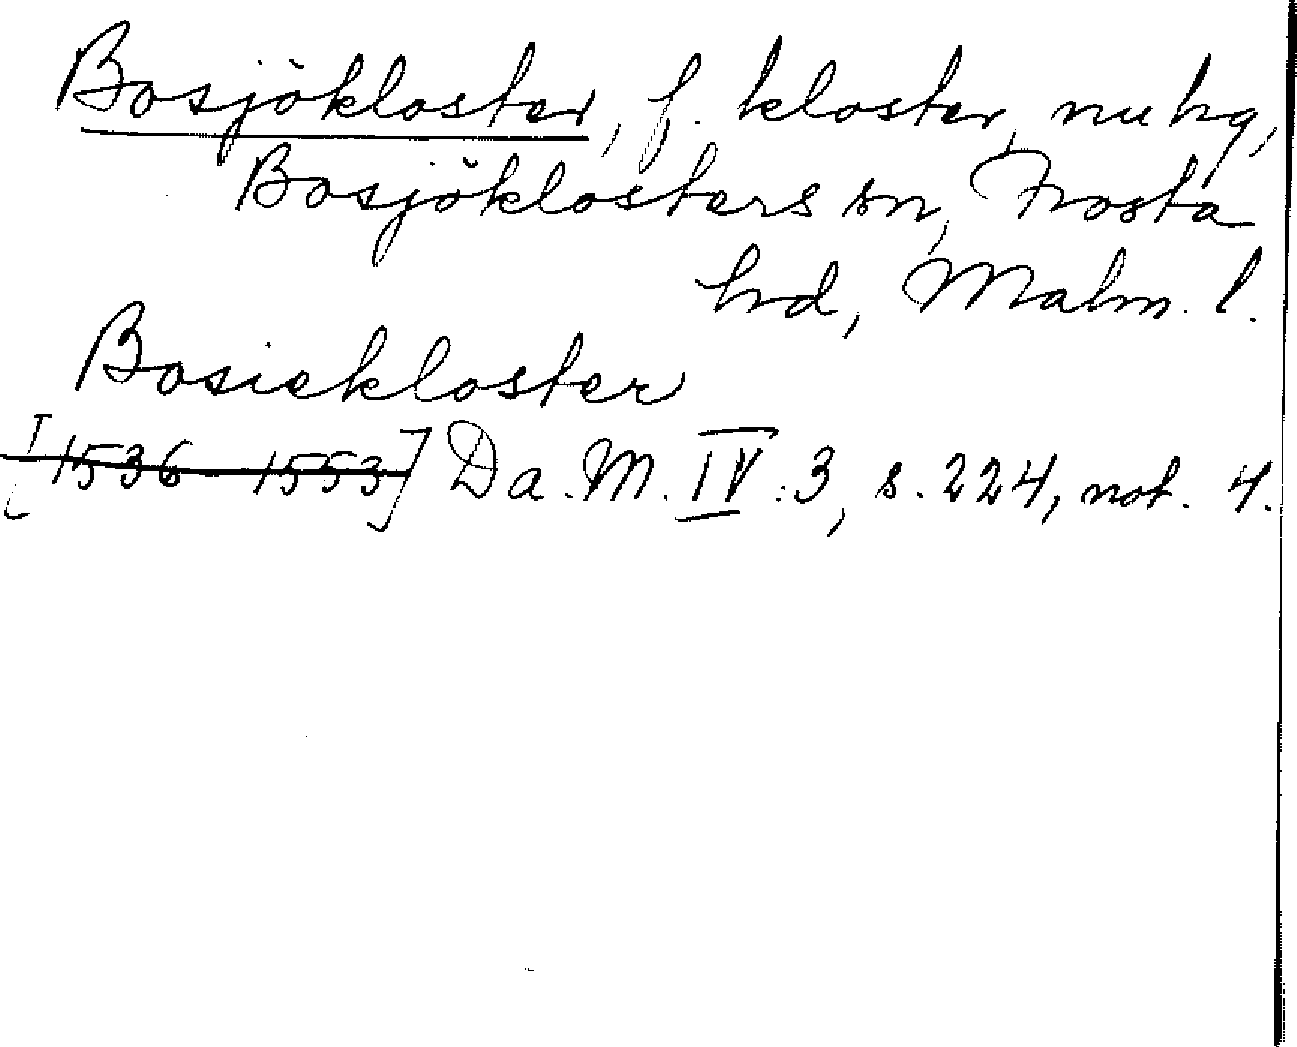 Bosjökloster, f. kloster, nu hg,
Bosjöklosters sn, Frosta
hd, Malm. l.
Bosiekloster
[1536–1553] Da. M. IV:3, s. 224, not. 4.